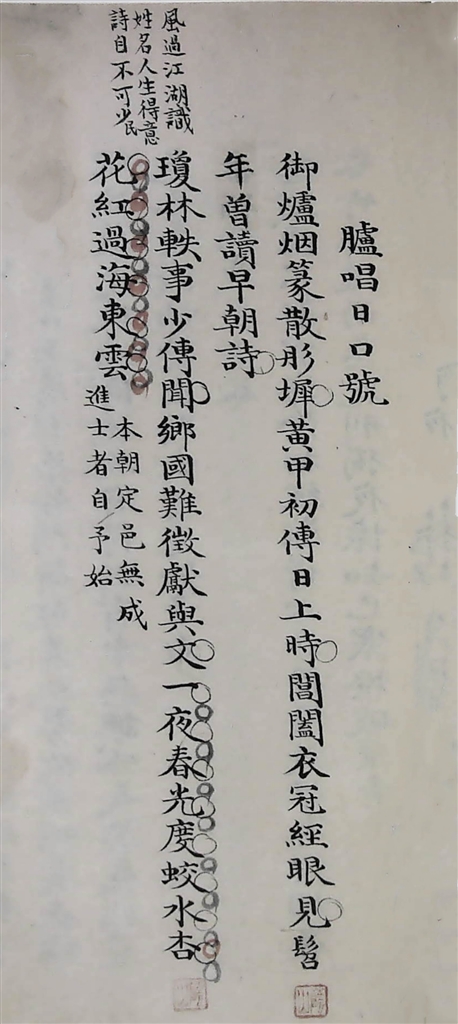 臚唱日口號
御爐烟篆散彤墀黃甲初傳日上時閶闔衣冠經眼見髫
年曾讀早朝詩
瓊林軼事少傳聞鄉國難徵獻與文一夜春光度蛟水杏
花紅過海東雲
本朝定邑無成
進士者自予始
風過江湖識
姓名人生得意
詩自不可少民